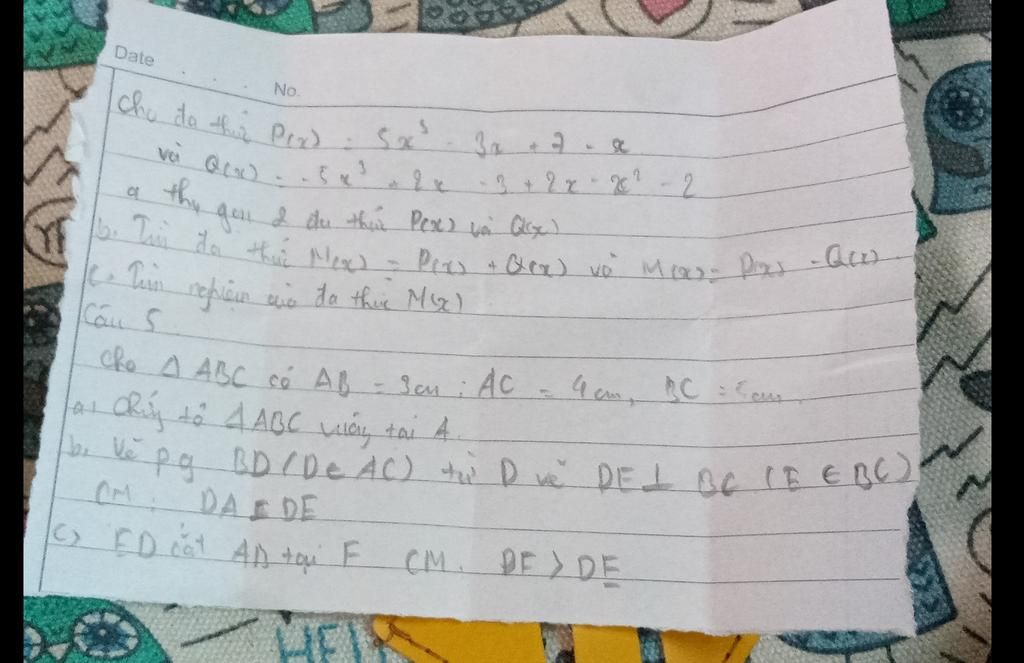 Date
No.
Cho đa thức P(x) = 5x³ - 3x + 7 - x
và Q(x) = -5x³ + 2x - 3 + 2x - x² - 2
a thu gọn 2 đa thức P(x) và Q(x)
b. Tìm đa thức M(x) = P(x) + Q(x) và M(x) = P(x) - Q(x)
c. Tìm nghiệm của đa thức M(x)
Câu 5
Cho Δ ABC có AB = 3cm ; AC = 4cm, BC = 5cm.
a, Chứng tỏ Δ ABC vuông tại A.
b, Vẽ pg BD (D ∈ AC) từ D vẽ DE ⊥ BC (E ∈ BC)
CM. DA = DE
c) ED cắt AB tại F CM. DF > DE
HEL